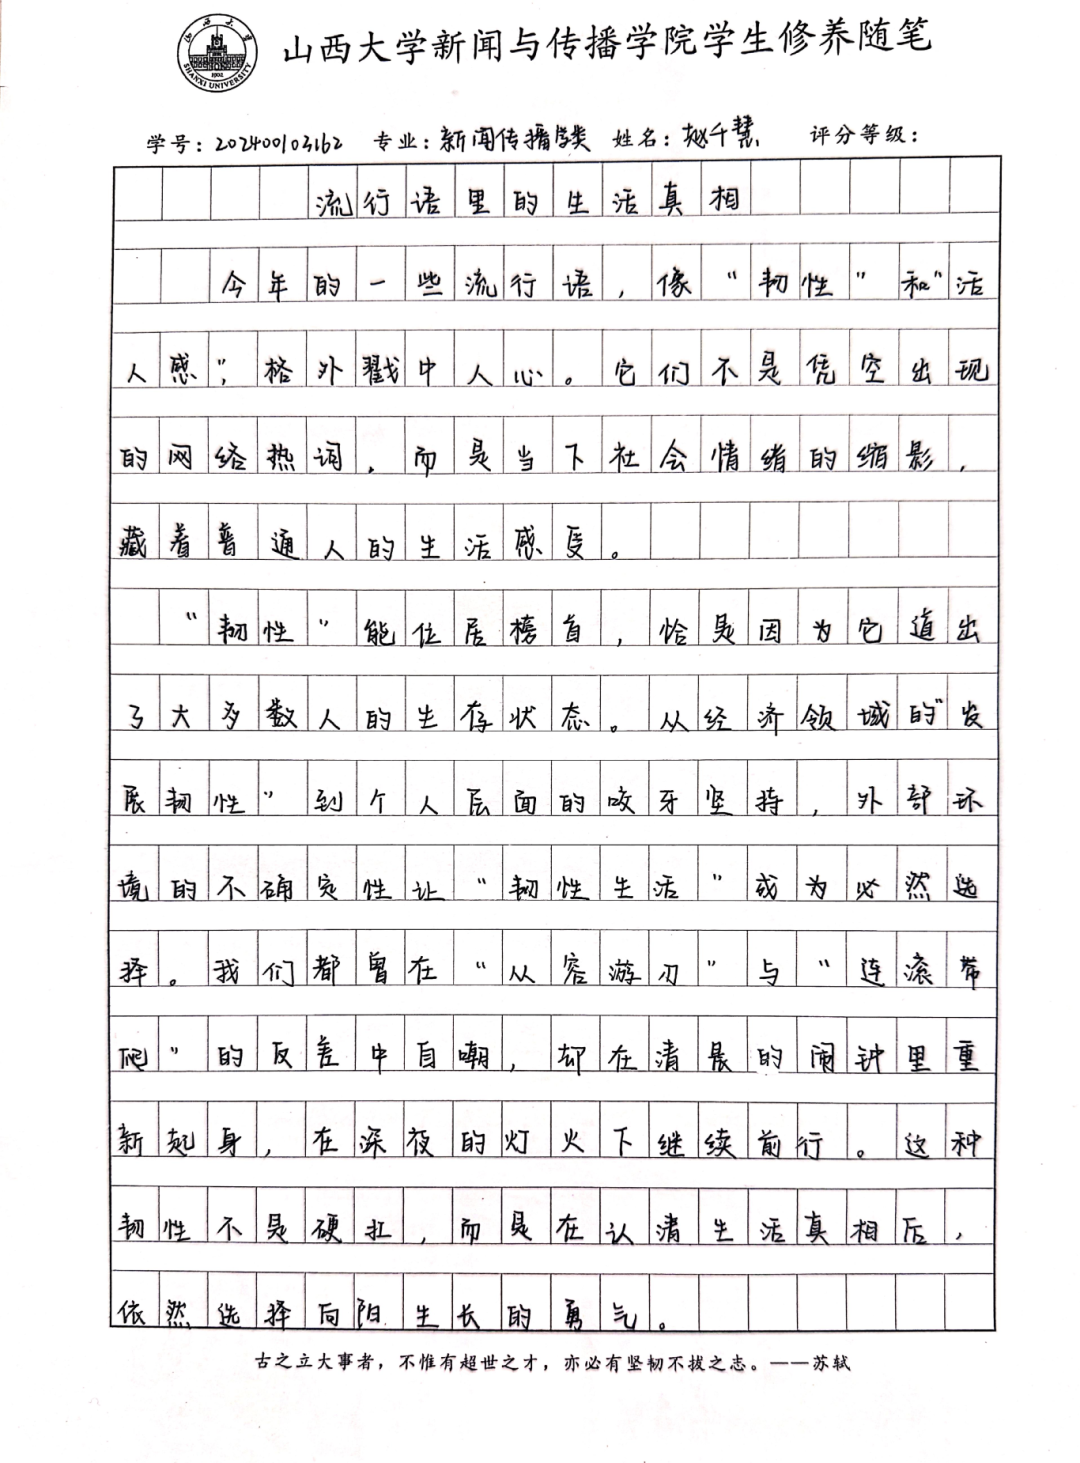 山西大学
1902
SHANXI UNIVERSITY
山西大学新闻与传播学院学生修养随笔
学号：202400103162 专业：新闻传播学类 姓名：赵千慧 评分等级：
流行语里的生活真相
今年的一些流行语，像“韧性”和“活
人感”，格外戳中人心。它们不是凭空出现
的网络热词，而是当下社会情绪的缩影，
藏着普通人的生活感受。
“韧性”能位居榜首，恰是因为它道出
了大多数人的生存状态。从经济领域的“发
展韧性”到个人层面的咬牙坚持，外部环
境的不确定性让“韧性生活”成为必然选
择。我们都曾在“从容游刃”与“连滚带
爬”的反差中自嘲，却在清晨的闹钟里重
新起身，在深夜的灯火下继续前行。这种
韧性不是硬扛，而是在认清生活真相后，
依然选择向阳生长的勇气。
古之立大事者，不惟有超世之才，亦必有坚韧不拔之志。——苏轼